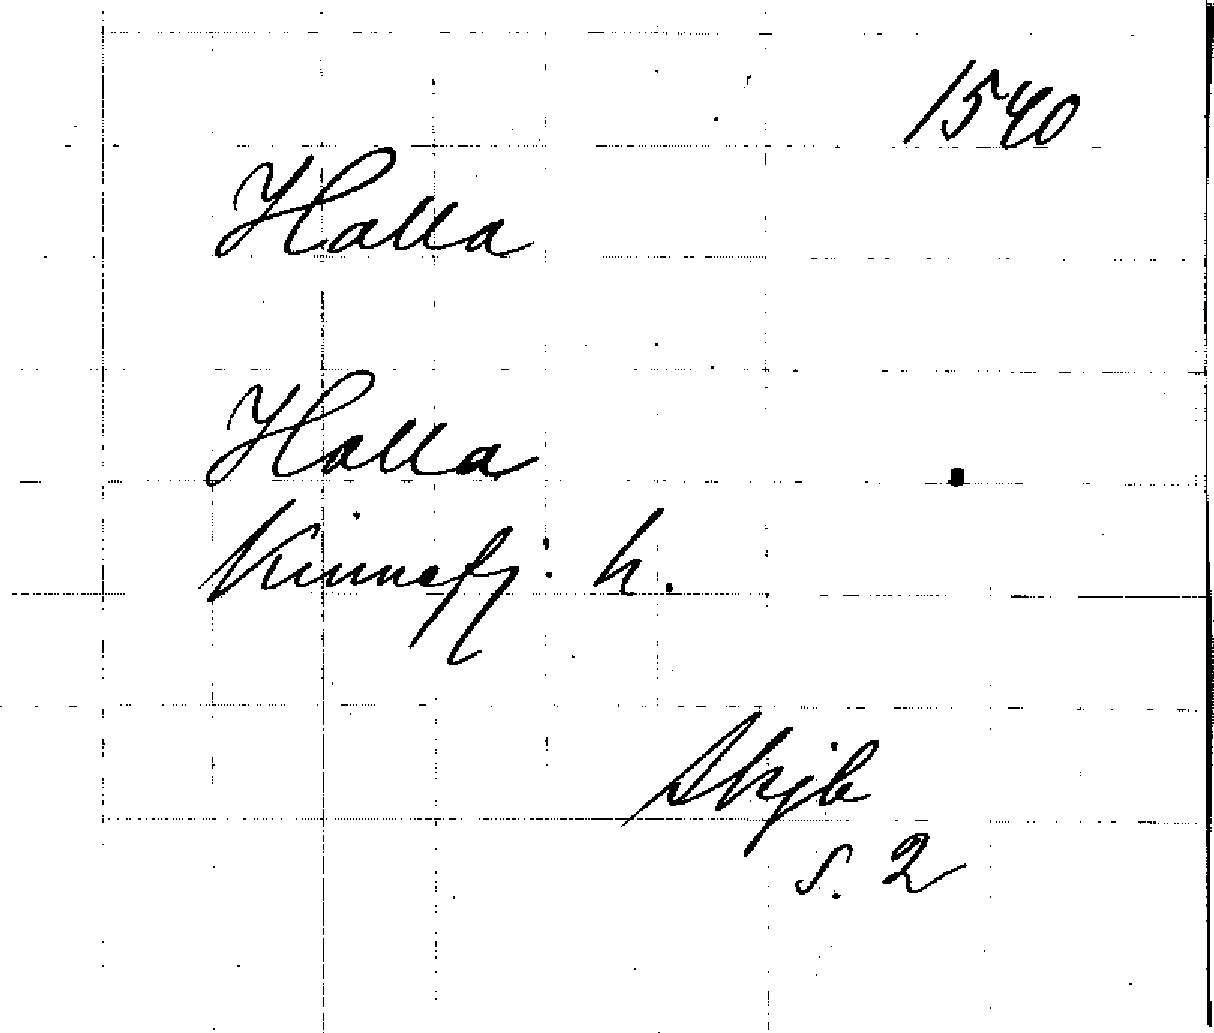 1540
Halla
Halla
Kinnefj: h.
Skjb
s. 2